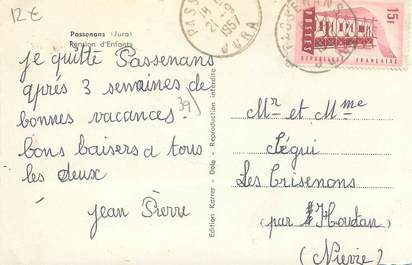 12 €
Passenans (Jura)
Pension d'Enfants
je quitte Passenans
après 3 semaines de
bonnes vacances.
bons baisers a tous
les deux
Jean Pierre
39
Edition Karrer - Dole - Reproduction interdite
1957
JURA
15F
EUROPA
REPUBLIQUE FRANÇAISE
Mr et Mme
Ségui
Les Crisenons
(par Houdan)
(Nievre)